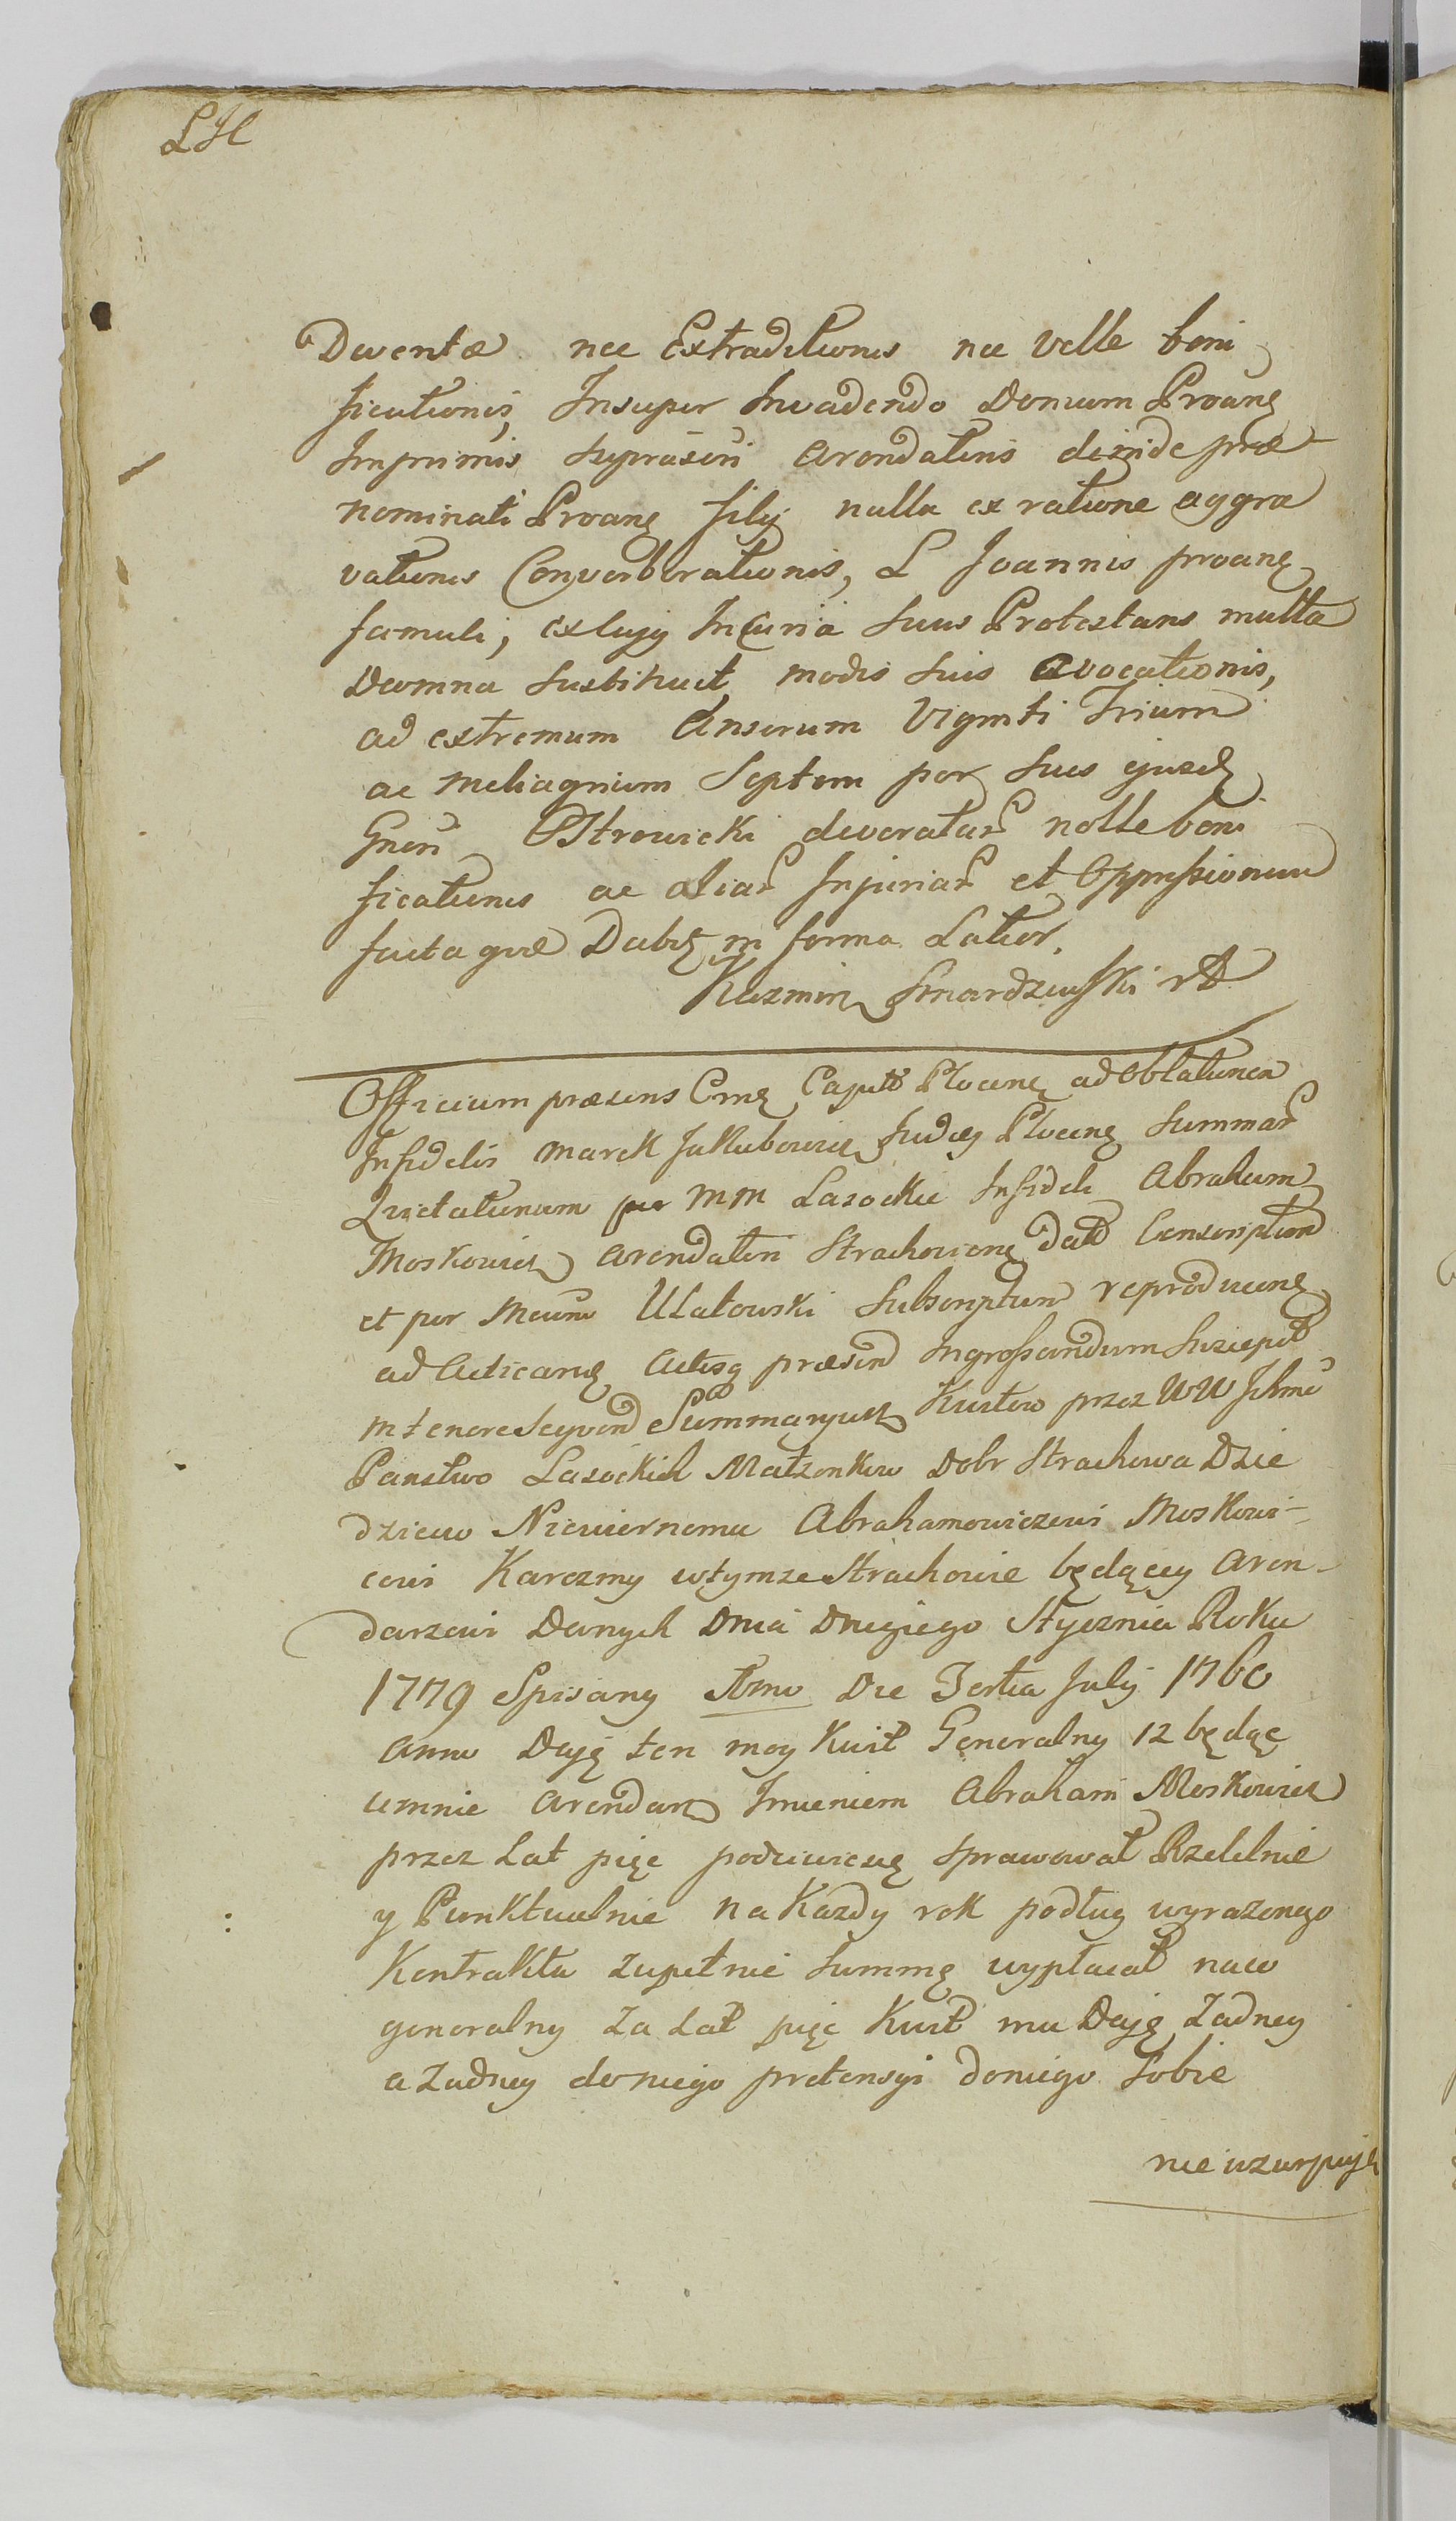 Deventæ nec Extraditionis nec velle boni
ficationis, Insuper Invadendo Domum Proang
Imprimis supraseri arendatoris deinde præ
nominati Proang filij nulla ex ratione aggra
vationis Converberationis, L Joannis proang
famuli, ex Incuria suus Protestans multa
Damna sustinuit modis suis avocationis,
ad extremum Anserum Viginti Trium
ac meliagrium Septem per sues ejusdz
Gneri Ostrowicki devoratar nolle boni
ficationis ac aliar Injuriar et Oppressionum
facta quæ Dabit in forma Latior.
Kazmirz Smardzewski
Officium præsens Cme Capit Plocene ad Oblationem
Infidelis Marek Jakubowicz Judæi Plocene Summar
Quietationum per MM Lasockie Infideli Abraham
Moskowicz arendatori Strachowiene dat Conscription
et per Meum Ulatowski Subscriptum reproducene
ad Acticane Actisq præsen Ingrossandum Suscepit
in tenore Seqven Summaryusz Kwitow przez WW Jchmc
Panstwo Lasockich Małżonkow Dobr Strachowa Dzie
dzicow Niewiernemu Abrahamowiczowi Moskowi-
cowi Karczmy wtymze Strachowie będącey Aren-
darzowi Danych Dnia Drugiego Stycznia Roku
1779 Spisany 1mo Die Tertia Julij 1760
anno Daję ten moy Kwit Generalny iz będąc
umnie arendarz Imieniem Abraham Moskowicz
przez Lat pięc poduiwieę sprawował Rzetelnie
y Punktualnie na Każdy rok podług wyrażonego
Kontraktu zupełnie summę wypłacał naco
generalny za Lat pięc Kwit mu Daję żadney
a żadney do niego pretensyi doniego sobie
nie uzurpuję